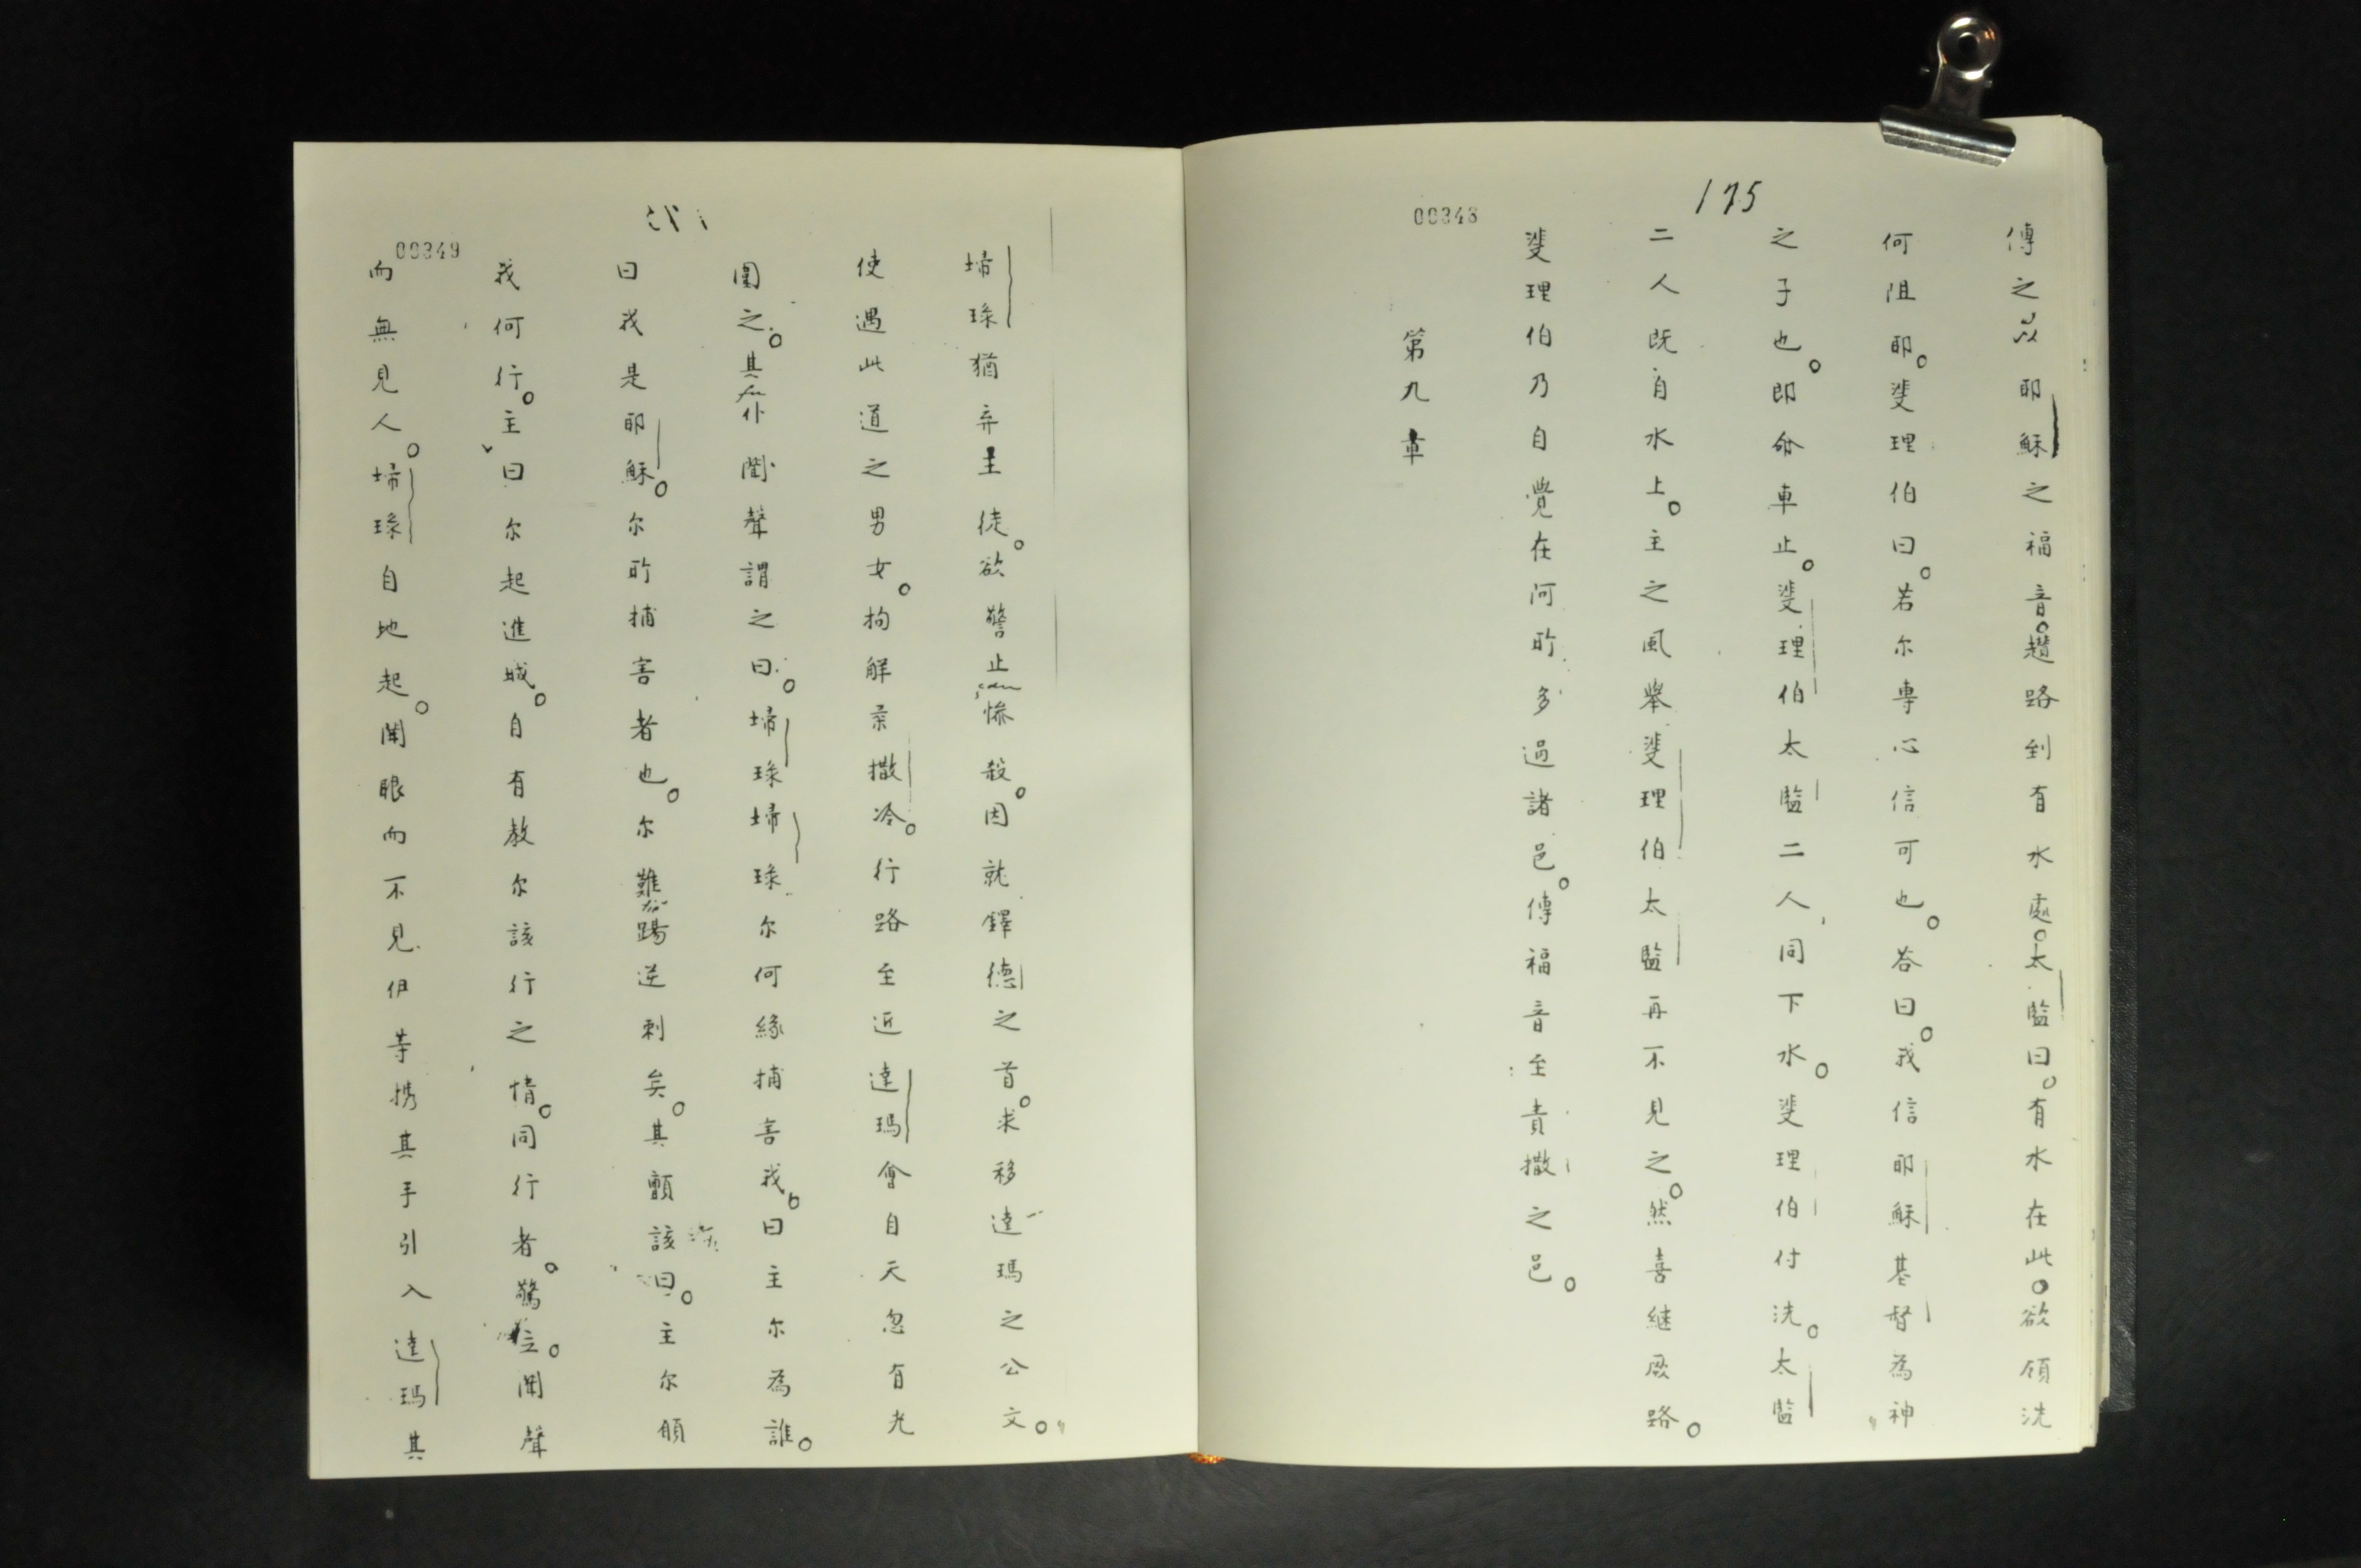 175
00348
傳之以耶穌之福音。趲路到有水處。太監曰。有水在此。欲領洗
何阻耶。斐理伯曰。若尔專心信可也。答曰。我信耶穌基督為神
之子也。即命車止。斐理伯太監二人同下水。斐理伯付洗。太監
二人既自水上。主之風舉斐理伯太監再不見之。然喜継厥路。
斐理伯乃自覺在阿所多過諸邑。傳福音至責撒之邑。
第九章
00349
埽琭猶弃主徒。欲警止慘殺。因就鐸德之首。求移達瑪之公文。
使遇此道之男女。拘解柔撒冷。行路至近達瑪會自天忽有光
圍之。其仆聞聲謂之曰。埽琭埽琭尔何緣捕害我。曰主尔為誰。
曰我是耶穌。尔所捕害者也。尔難踢逆刺矣。其顫該曰。主尔願
我何行。主曰尔起進城。自有教尔該行之情。同行者。驚位。聞聲
而無見人。埽琭自地起。開眼而不見伊等携其手引入達瑪其